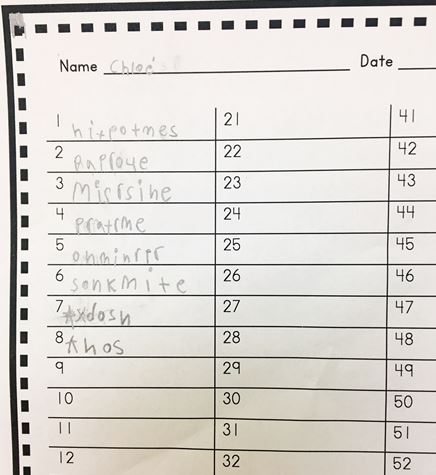 Name Chloe Date
1 hitpotmes 21 41
2 22 42
3 23 43
4 24 44
5 25 45
6 sonkmite 26 46
7 27 47
8 *hos 28 48
9 29 49
10 30 50
11 31 51
12 32 52